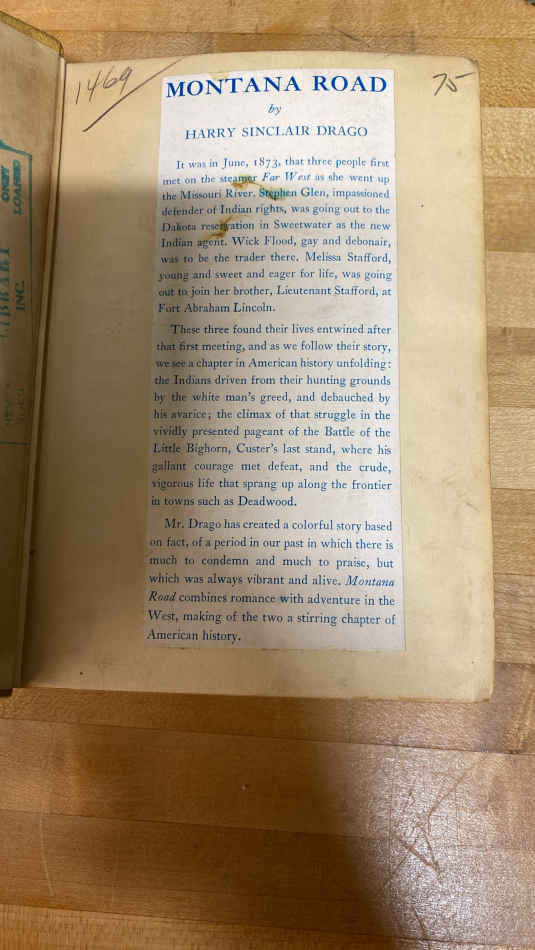 1469
75
MONTANA ROAD
by
HARRY SINCLAIR DRAGO
It was in June, 1873, that three people first
met on the steamer Far West as she went up
the Missouri River. Stephen Glen, impassioned
defender of Indian rights, was going out to the
Dakota reservation in Sweetwater as the new
Indian agent. Wick Flood, gay and debonair,
was to be the trader there. Melissa Stafford,
young and sweet and eager for life, was going
out to join her brother, Lieutenant Stafford, at
Fort Abraham Lincoln.
These three found their lives entwined after
that first meeting, and as we follow their story,
we see a chapter in American history unfolding:
the Indians driven from their hunting grounds
by the white man's greed, and debauched by
his avarice; the climax of that struggle in the
vividly presented pageant of the Battle of the
Little Bighorn, Custer's last stand, where his
gallant courage met defeat, and the crude,
vigorous life that sprang up along the frontier
in towns such as Deadwood.
Mr. Drago has created a colorful story based
on fact, of a period in our past in which there is
much to condemn and much to praise, but
which was always vibrant and alive. Montana
Road combines romance with adventure in the
West, making of the two a stirring chapter of
American history.
LIBRARY
INC.
ONLY
LOANED